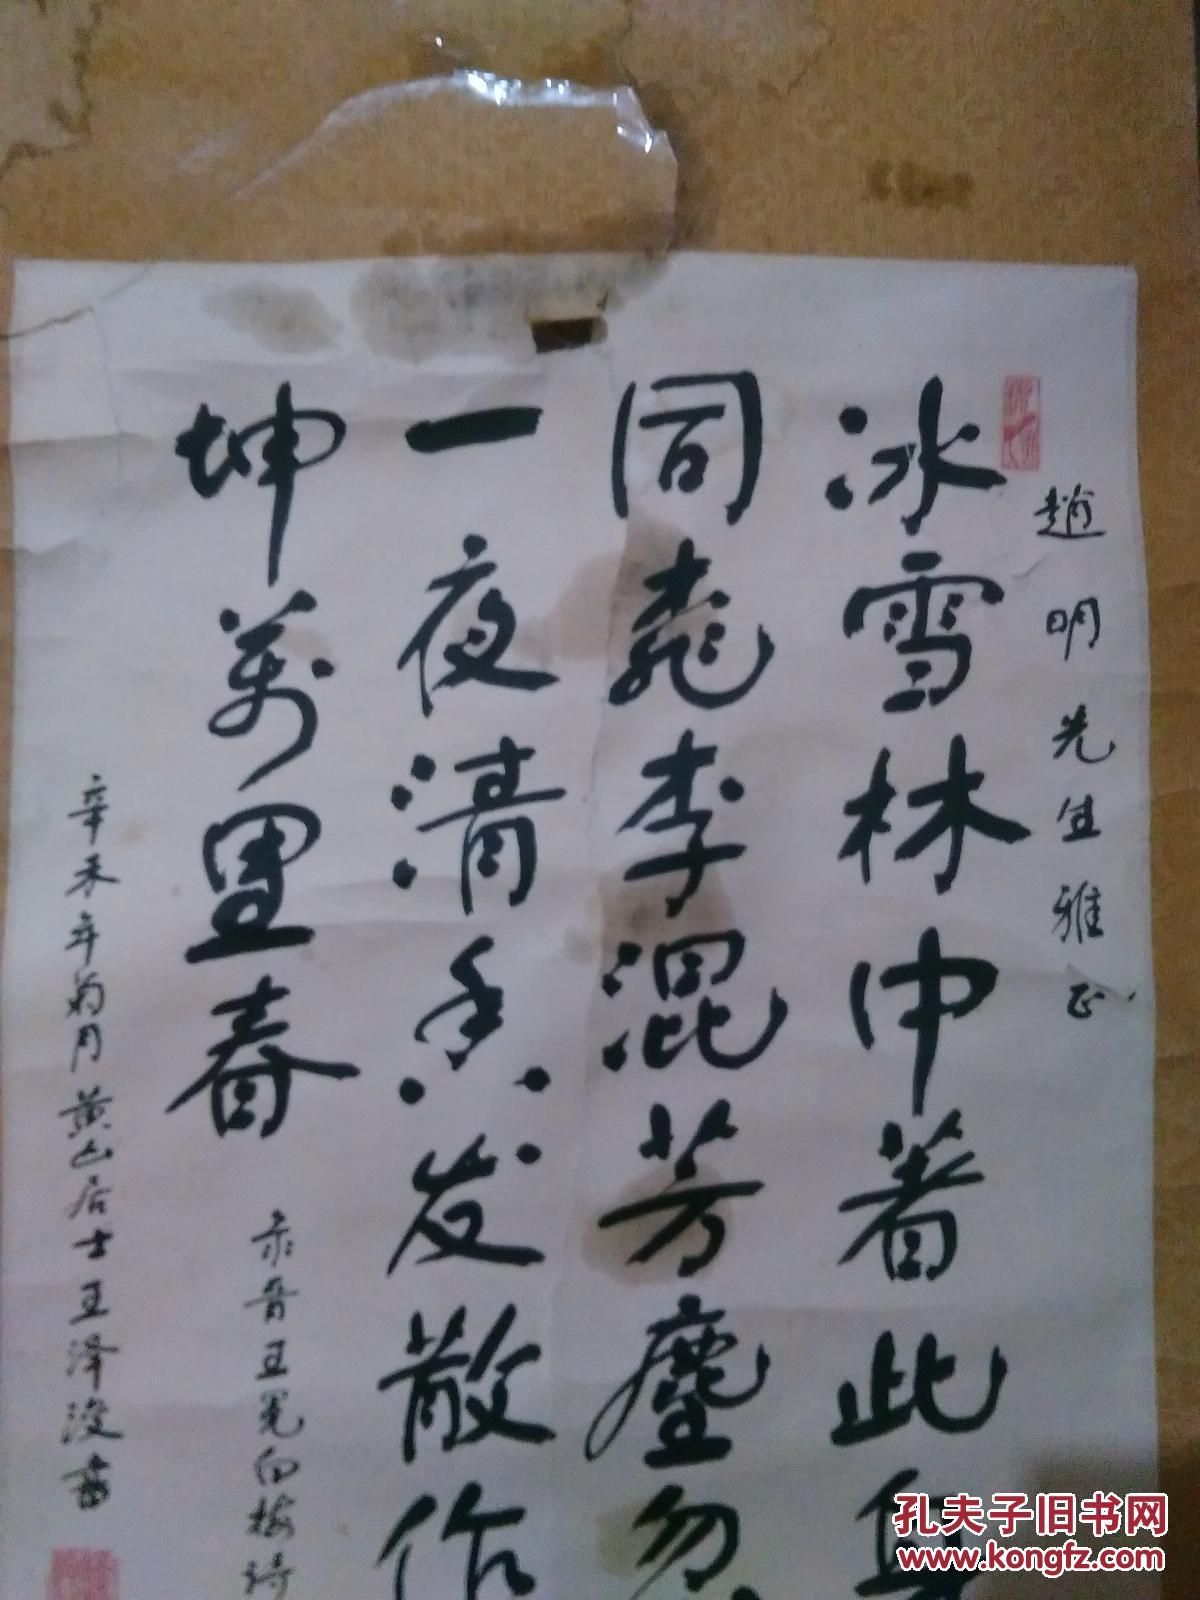 趙明先生雅正
冰雪林中著此身
同桃李混芳塵忽
一夜清香发散作
坤萬里春
录晋王冕白梅诗
辛未年菊月黄山居士王泽浚書
孔夫子旧书网
www.kongfz.com